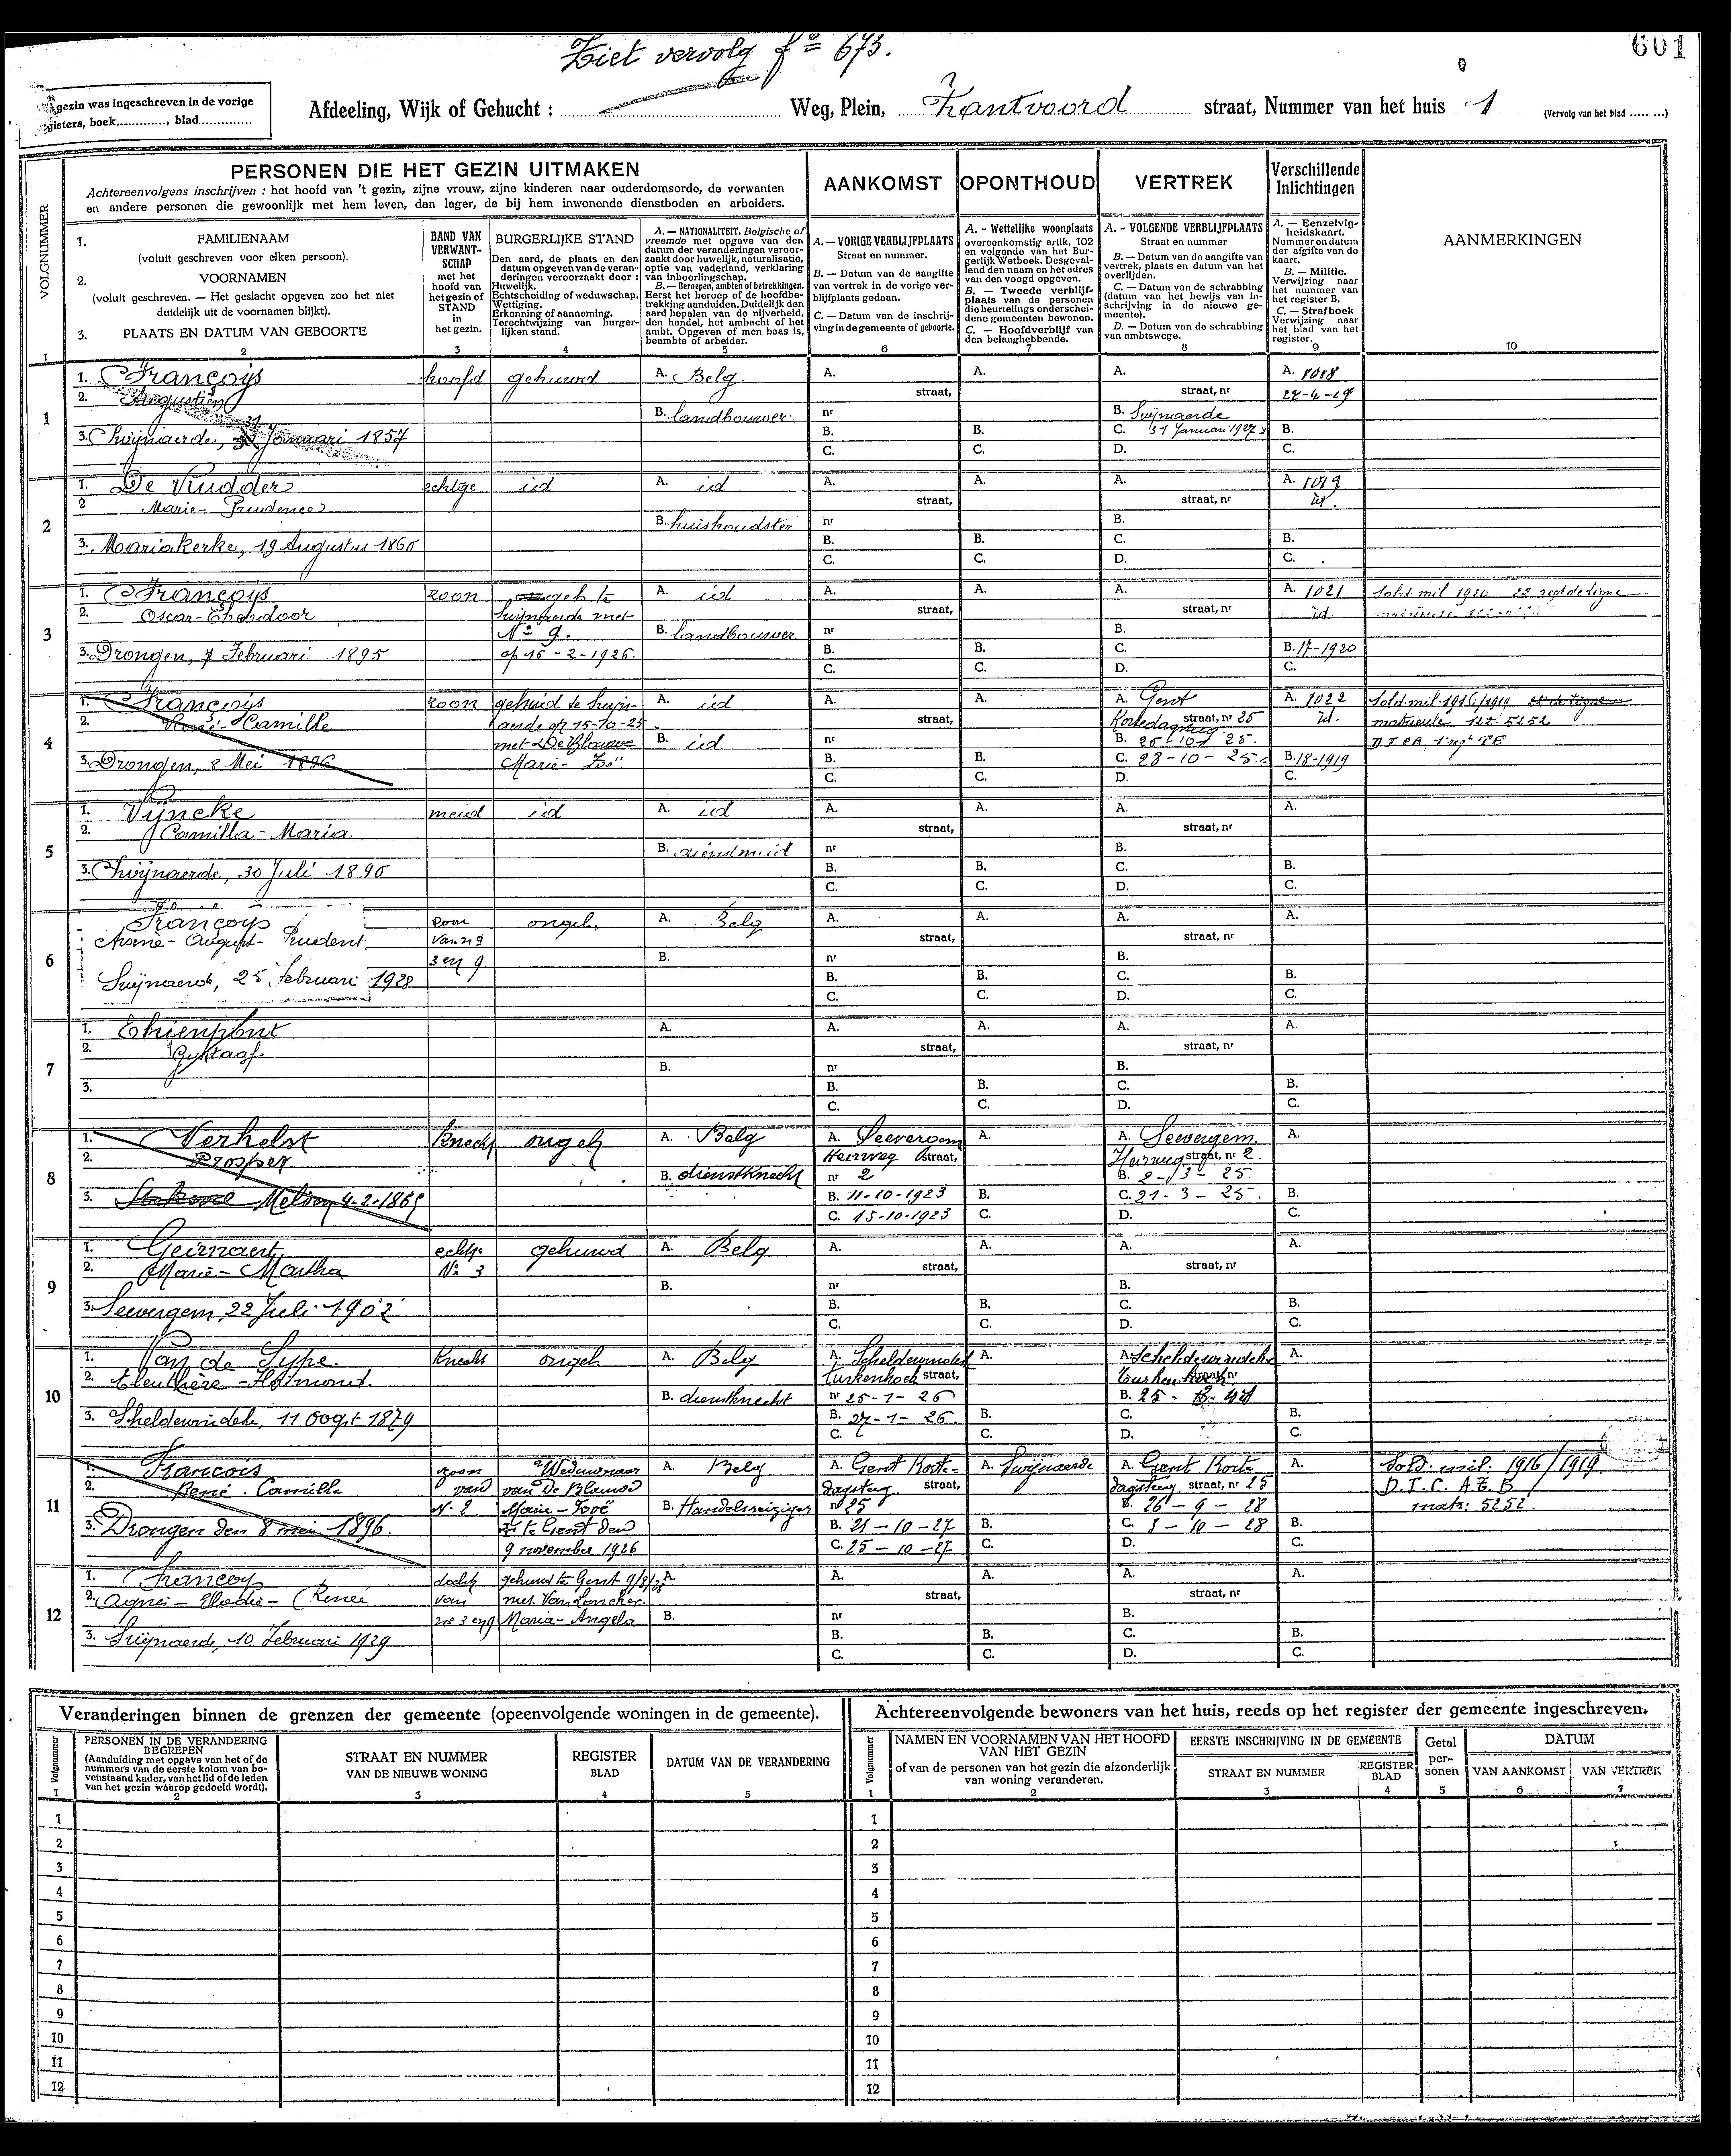 Ziet vervolg fº = 673.
601
gezin was ingeschreven in de vorige
gisters, boek............., blad.............
Afdeeling, Wijk of Gehucht : Weg, Plein, Zantvoord straat, Nummer van het huis 1 (Vervolg van het blad ..... ...)
PERSONEN DIE HET GEZIN UITMAKEN
Achtereenvolgens inschrijven : het hoofd van 't gezin, zijne vrouw, zijne kinderen naar ouderdomsorde, de verwanten
en andere personen die gewoonlijk met hem leven, dan lager, de bij hem inwonende dienstboden en arbeiders.
AANKOMST
OPONTHOUD
VERTREK
Verschillende
Inlichtingen
AANMERKINGEN
VOLGNUMMER
1. FAMILIENAAM
(voluit geschreven voor elken persoon).
2. VOORNAMEN
(voluit geschreven. — Het geslacht opgeven zoo het niet
duidelijk uit de voornamen blijkt).
3. PLAATS EN DATUM VAN GEBOORTE
BAND VAN
VERWANT-
SCHAP
met het
hoofd van
het gezin of
STAND
in
het gezin.
BURGERLIJKE STAND
Den aard, de plaats en den
datum opgeven van de veran-
deringen veroorzaakt door :
Huwelijk.
Echtscheiding of weduwschap.
Wettiging.
Erkenning of aanneming.
Terechtwijzing van burger-
lijken stand.
A. — NATIONALITEIT. Belgische of
vreemde met opgave van den
datum der veranderingen veroor-
zaakt door huwelijk, naturalisatie,
optie van vaderland, verklaring
van inboorlingschap.
B. — Beroepen, ambten of betrekkingen.
Eerst het beroep of de hoofdbe-
trekking aanduiden. Duidelijk den
aard bepalen van de nijverheid,
den handel, het ambacht of het
ambt. Opgeven of men baas is,
beambte of arbeider.
A. — VORIGE VERBLIJFPLAATS
Straat en nummer.
B. — Datum van de aangifte
van vertrek in de vorige ver-
blijfplaats gedaan.
C. — Datum van de inschrij-
ving in de gemeente of geboorte.
A. - Wettelijke woonplaats
overeenkomstig artik. 102
en volgende van het Bur-
gerlijk Wetboek. Desgeval-
lend den naam en het adres
van den voogd opgeven.
B. — Tweede verblijf-
plaats van de personen
die beurtelings onderschei-
dene gemeenten bewonen.
C. — Hoofdverblijf van
den belanghebbende.
A. - VOLGENDE VERBLIJFPLAATS
Straat en nummer
B. — Datum van de aangifte van
vertrek, plaats en datum van het
overlijden.
C. — Datum van de schrabbing
(datum van het bewijs van in-
schrijving in de nieuwe ge-
meente).
D. — Datum van de schrabbing
van ambtswege.
A. — Eenzelvig-
heidskaart.
Nummer en datum
der afgifte van de
kaart.
B. — Militie.
Verwijzing naar
het nummer van
het register B.
C. — Strafboek
Verwijzing naar
het blad van het
register.
1 2 3 4 5 6 7 8 9 10
1
1. Françoijs hoofd gehuwd A. Belg A. A. A. A. 1018
2. Augustien straat, straat, nr 27-4-19
B. landbouwer nr B. Swijnaerde
3. Swijnaerde, 31 Januari 1857 B. B. C. 31 Januari 1927 B.
C. C. D. C.
2
1. De Vudder echtge id A. id A. A. A. A. 1019
2 Marie-Prudence straat, straat, nr id.
B. huishoudster nr B.
3. Mariakerke, 19 Augustus 1860 B. B. C. B.
C. C. D. C.
3
1. Françoijs zoon geh. te A. id A. A. A. A. 1021 Sold mil 1920 22 regt de ligne
2. Oscar-Theodoor Swijnaerde met straat, straat, nr id.
Nº 9. B. landbouwer nr B.
3. Drongen, 7 Februari 1895 op 16-2-1926. B. B. C. B. 17-1920
C. C. D. C.
4
1. Françoijs zoon gehuwd te Swijn- A. id A. A. A. Gent A. 1022 Sold. mil. 1916/1919
2. René-Camille aerde op 15-10-25 straat, Kortedagsteeg straat, nr 25 id. matricule 127. 5252
met De Blauwe B. id nr B. 26-10-25.
3. Drongen, 8 Mei 1896 Marie-Zoë B. B. C. 28-10-25. B. 18-1919
C. C. D. C.
5
1. Vijncke meid id A. id A. A. A. A.
2. Camilla-Maria straat, straat, nr
B. dienstmeid nr B.
3. Swijnaerde, 30 Juli 1890 B. B. C. B.
C. C. D. C.
6
Françoys zoon ongeh. A. Belg A. A. A. A.
Arsène-August-Prudent van nº straat, straat, nr
3 en 9 B. nr B.
Swijnaerde, 25 Februari 1928 B. B. C. B.
C. C. D. C.
7
1. Thienpont A. A. A. A. A.
2. Gustaaf straat, straat, nr
B. nr B.
3. B. B. C. B.
C. C. D.
8
1. Verhelst knecht ongeh A. Belg A. Seevergem A. A. Seevergem. A.
2. Prosper Heirweg straat, Heirweg straat, nr 2.
B. dienstknecht nr 2 B. 2-3-25.
3. Melsen 4-2-1869 B. 11-10-1923 B. C. 21-3-25. B.
C. 15-10-1923 C. D. C.
9
1. Geirnaert echtge gehuwd A. Belg A. A. A. A.
2. Marie-Martha Nº 3 straat, straat, nr
B. nr B.
3. Seevergem, 22 Juli 1902 B. B. C. B.
C. C. D. C.
10
1. Van de Sype. knecht ongeh A. Belg A. Scheldewindeke A. A. Scheldewindeke A.
2. Eleuthère straat, straat, nr
B. dienstknecht nr 25-1-26 B.
3. Scheldewindeke, 11 Oogst 1879 B. 27-1-26. B. C. B.
C. C. D. C.
11
1. Francois zoon Weduwnaar A. Belg A. Gent Korte- A. Swijnaerde A. Gent Korte A. Sold. mil. 1916/1919
2. René. Camille van van De Blauwe dagsteeg straat, dagsteeg straat, nr 25 D.T.C.A.
N. 2. Marie-Zoë B. Handelsreiziger nr 25 B. 26-9-28 matr: 5252.
3. Drongen den 8 mei 1896. te Gent den B. 21-10-27 B. C. 3-10-28 B.
9 november 1926 C. 25-10-27 C. D. C.
12
1. Françoys docht gehuwd te Gent A. A. A. A. A.
2. Agnes-Elodie-Renée van met straat, straat, nr
nrs 3 en 9 Maria-Angela B. nr B.
3. Swijnaerde, 10 Februari 1929 B. B. C. B.
C. C. D. C.
Veranderingen binnen de grenzen der gemeente (opeenvolgende woningen in de gemeente).
Volgnummer
PERSONEN IN DE VERANDERING
BEGREPEN
(Aanduiding met opgave van het of de
nummers van de eerste kolom van bo-
venstaand kader, van het lid of de leden
van het gezin waarop gedoeld wordt).
STRAAT EN NUMMER
VAN DE NIEUWE WONING
REGISTER
BLAD
DATUM VAN DE VERANDERING
1 2 3 4 5
1
2
3
4
5
6
7
8
9
10
11
12
Achtereenvolgende bewoners van het huis, reeds op het register der gemeente ingeschreven.
Volgnummer
NAMEN EN VOORNAMEN VAN HET HOOFD
VAN HET GEZIN
of van de personen van het gezin die afzonderlijk
van woning veranderen.
EERSTE INSCHRIJVING IN DE GEMEENTE
STRAAT EN NUMMER
REGISTER
BLAD
Getal
per-
sonen
DATUM
VAN AANKOMST
VAN VERTREK
1 2 3 4 5 6 7
1
2
3
4
5
6
7
8
9
10
11
12